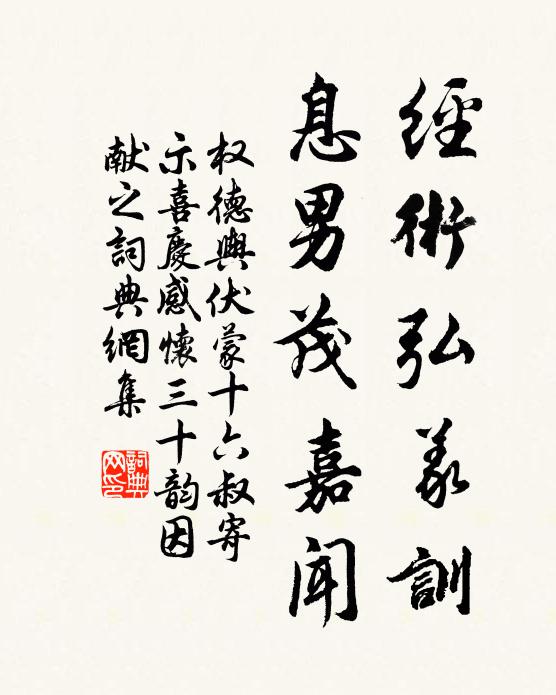 經術弘義訓
息男茂嘉聞
权德輿伏蒙十六叔寄
示喜慶感懷三十韵因
献之詞典網集
詞典网印